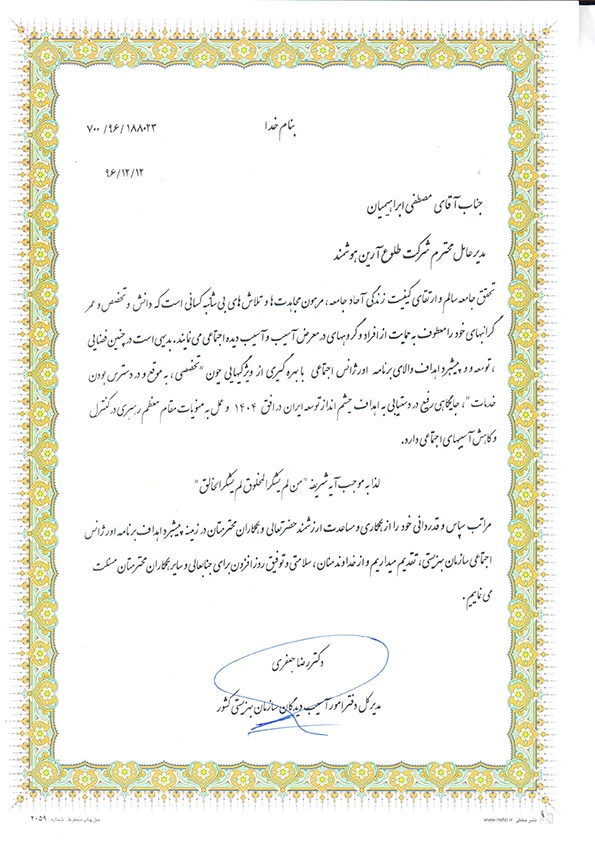 بنام خدا
۷۰۰/۹۶/۱۸۸۰۲۳
۹۶/۱۲/۱۲
جناب آقای مصطفی ابراهیمیان
مدیر عامل محترم شرکت طلوع آرین هوشمند
تحقق جامعه سالم و ارتقای کیفیت زندگی آحاد جامعه، مرهون مجاهدت ها و تلاش های بی شائبه کسانی است که دانش و تخصص و عمر
گرانبهای خود را معطوف به حمایت از افراد و گروههای در معرض آسیب و آسیب دیده اجتماعی می نمایند. بدیهی است در چنین فضایی
، توسعه و و پیشبرد اهداف والای برنامه اورژانس اجتماعی با بهره گیری از ویژگیهایی چون "تخصصی، به موقع و در دسترس بودن
خدمات"، جایگاهی رفیع در دستیابی به اهداف چشم انداز توسعه ایران در افق ۱۴۰۴ و عمل به منویات مقام معظم رهبری در کنترل
و کاهش آسیبهای اجتماعی دارد.
لذا به موجب آیه شریفه "من لم یشکر المخلوق لم یشکر الخالق"
مراتب سپاس و قدردانی خود را از همکاری و مساعدت ارزشمند حضرتعالی و همکاران محترمتان در زمینه پیشبرد اهداف برنامه اورژانس
اجتماعی سازمان بهزیستی، تقدیم میداریم و از خداوند منان، سلامتی و توفیق روز افزون برای جنابعالی و سایر همکاران محترمتان مسئلت
می نماییم.
دکتر رضا جعفری
مدیر کل دفتر امور آسیب دیدگان سازمان بهزیستی کشور
نشر حفظی www.hefzi.ir
حق چاپ محفوظ شماره: ۲۰۵۹